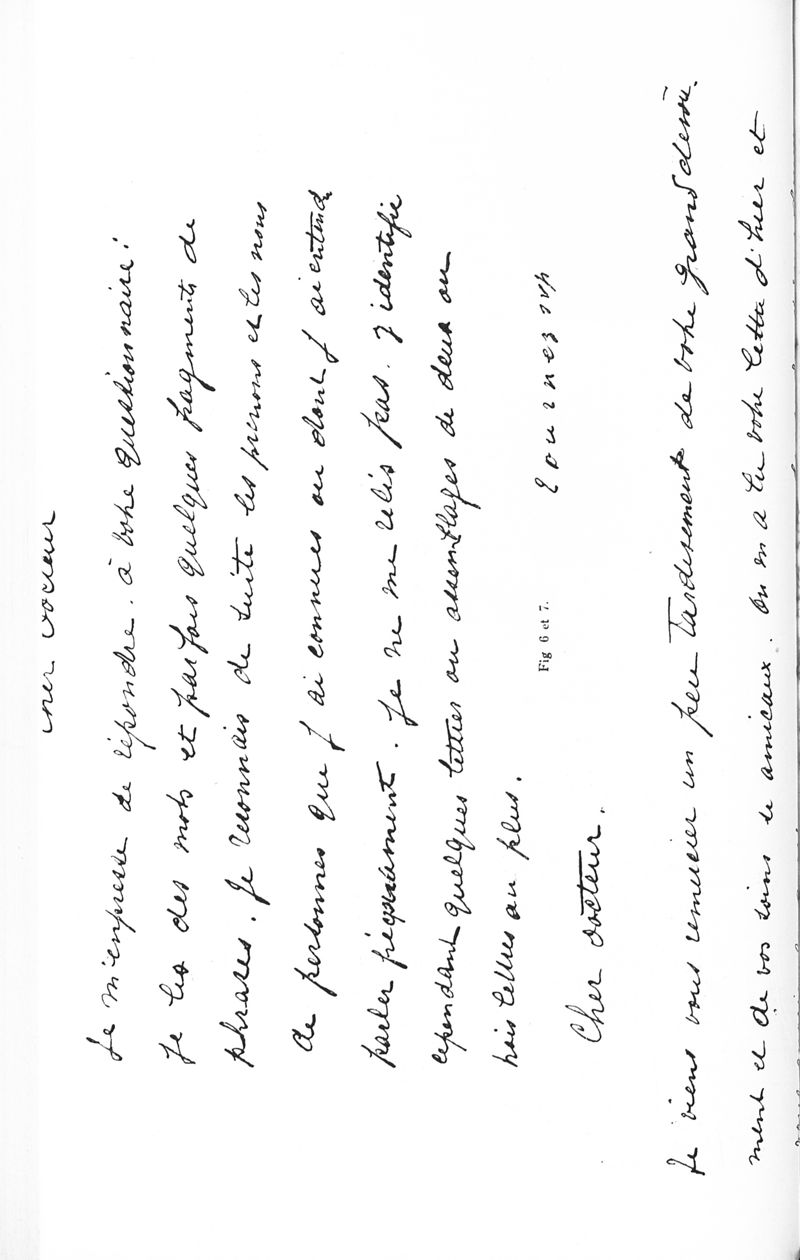 cher docteur
Je m'empresse de répondre. à votre questionnaire:
Je lis des mots et parfois quelques fragments de
phrases. Je reconnais de suite les prénoms et les noms
de personnes que j'ai connues ou dont j'ai entendu
parler précisément. Je ne me relis pas. J'identifie
cependant quelques lettres ou assemblages de deux ou
trois lettres au plus.
Fig 6 et 7.
Cher docteur.
Je viens vous remercier un peu Tardivement de votre grand dévoue
ment et de vos soins si amicaux. On m'a lu votre lettre d'hier et